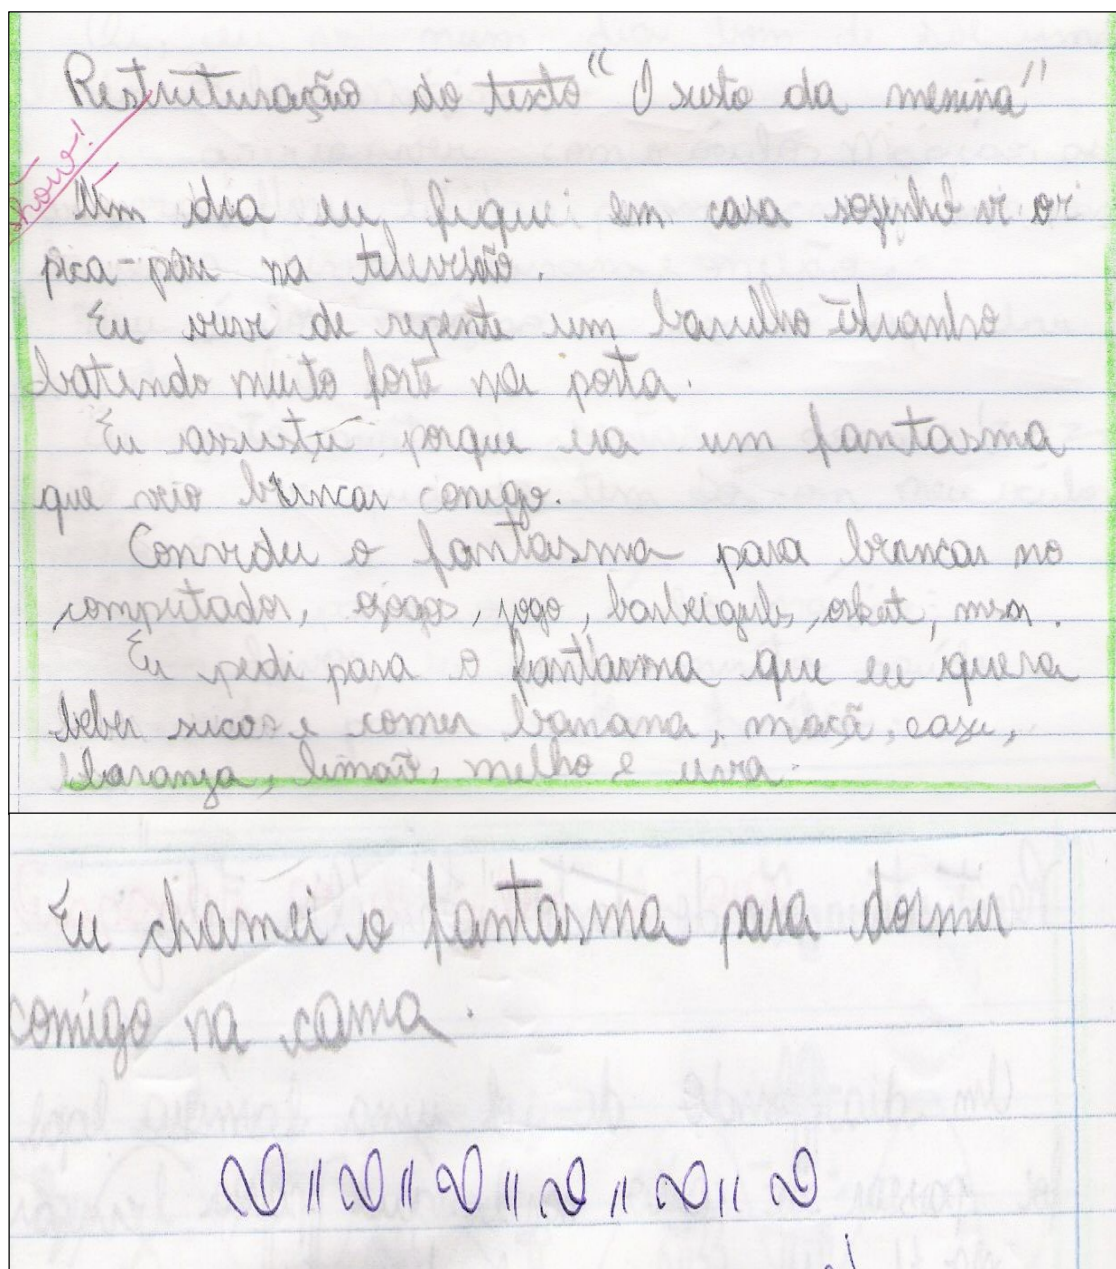 Restruturação do texto "O susto da menina"
Show!
Um dia eu fiquei em casa sozinho vi o
pica-pau na televisão.
Eu ouvi de repente um barulho estranho
batendo muito forte na porta.
Eu assustei porque era um fantasma
que veio brincar comigo.
Convidei o fantasma para brincar no
computador, jogo, mesa.
Eu pedi para o fantasma que eu quera
beber sucos e comer banana, maçã,
laranja, limão, melho e uva.
Eu chamei o fantasma para dormir
comigo na cama.